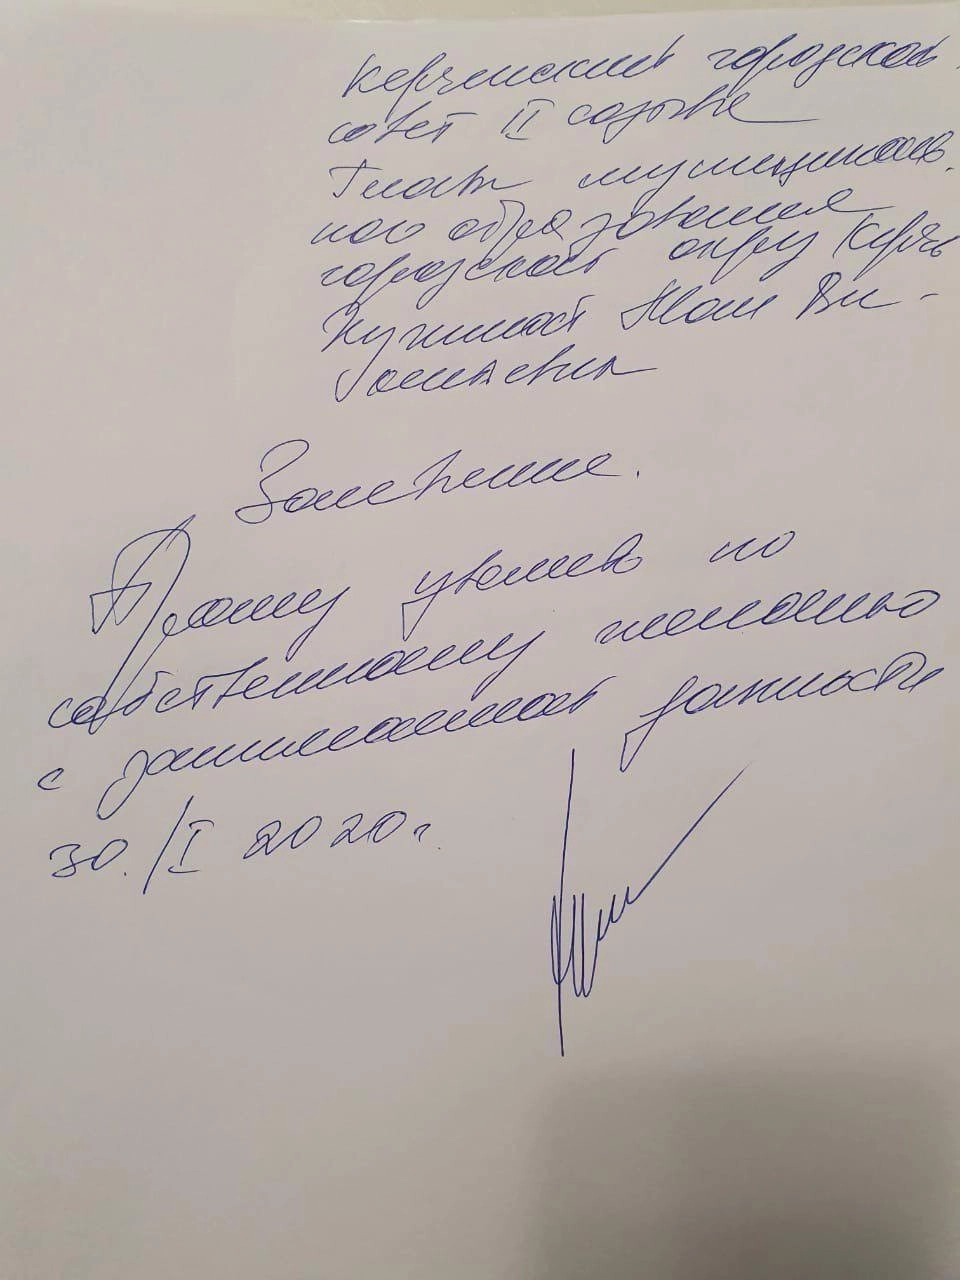 Керченский городской
совет II созыва
Главе муниципаль-
ного образования
городской округ Керчь
Заявление.
Прошу уволить по
собственному желанию
с занимаемой должности
30./I 2020г.